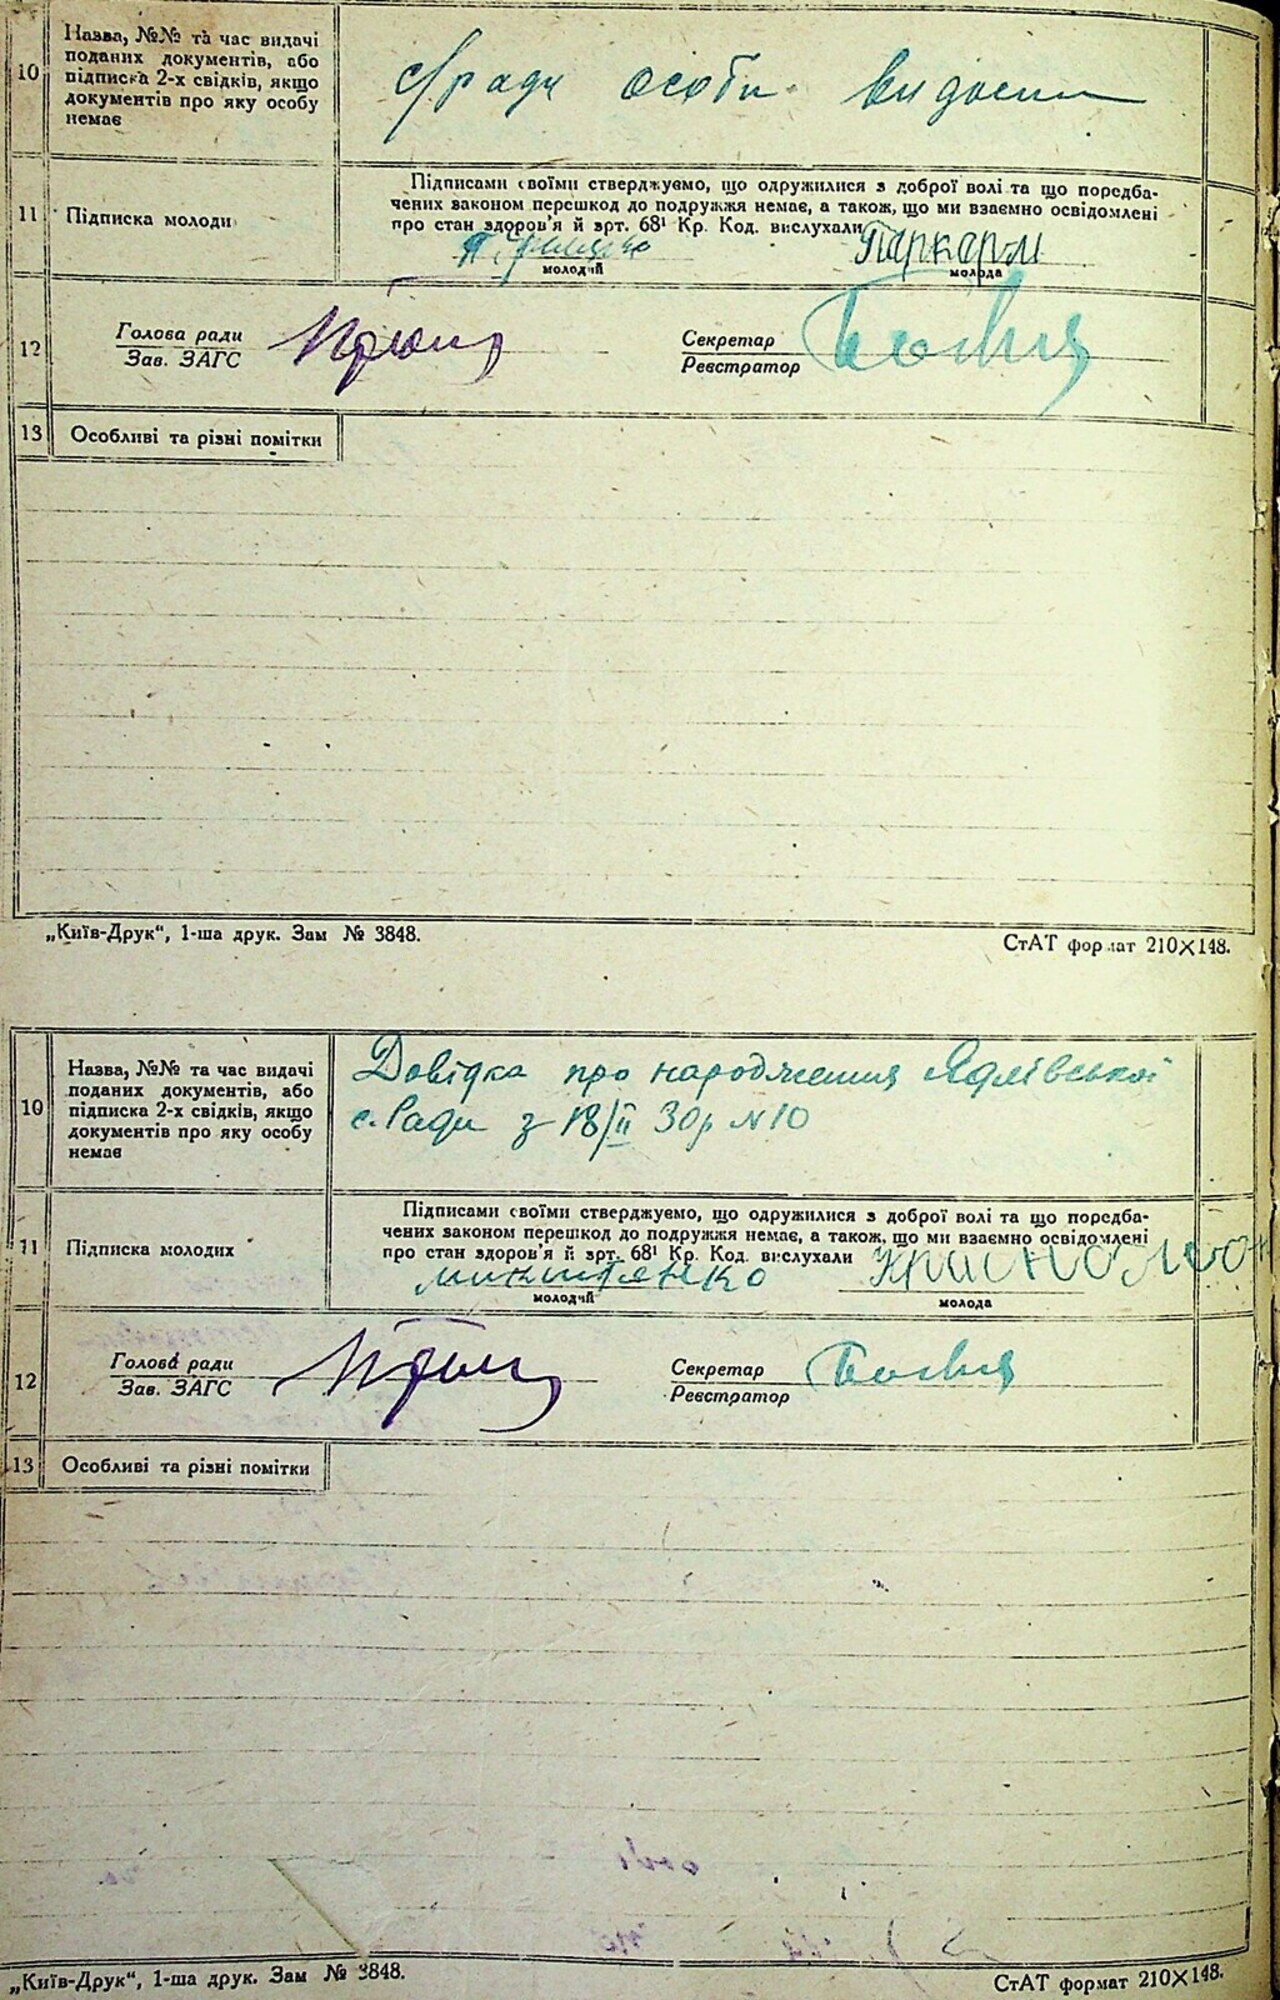 10
Назва, №№ та час видачі
поданих документів, або
підписка 2-х свідків, якщо
документів про яку особу
немає
с/ради особи видоми
11
Підписка молоди
Підписами своїми стверджуємо, що одружилися з доброї волі та що поредба-
чених законом перешкод до подружжя немає, а також, що ми взаємно освідомлені
про стан здоров'я й арт. 68¹ Кр. Код. вислухали
молодий
молода
12
Голова ради
Зав. ЗАГС
Секретар
Реєстратор
13
Особливі та різні помітки
„Київ-Друк“, 1-ша друк. Зам № 3848.
СтАТ формат 210×148.
10
Назва, №№ та час видачі
поданих документів, або
підписка 2-х свідків, якщо
документів про яку особу
немає
Довідка про народження Ядлівської
с. Ради з 18/II 30р №10
11
Підписка молодих
Підписами своїми стверджуємо, що одружилися з доброї волі та що поредба-
чених законом перешкод до подружжя немає, а також, що ми взаємно освідомлені
про стан здоров'я й арт. 68¹ Кр. Код. вислухали
микитенко
молодий
молода
12
Голова ради
Зав. ЗАГС
Секретар
Реєстратор
13
Особливі та різні помітки
„Київ-Друк“, 1-ша друк. Зам № 3848.
СтАТ формат 210×148.